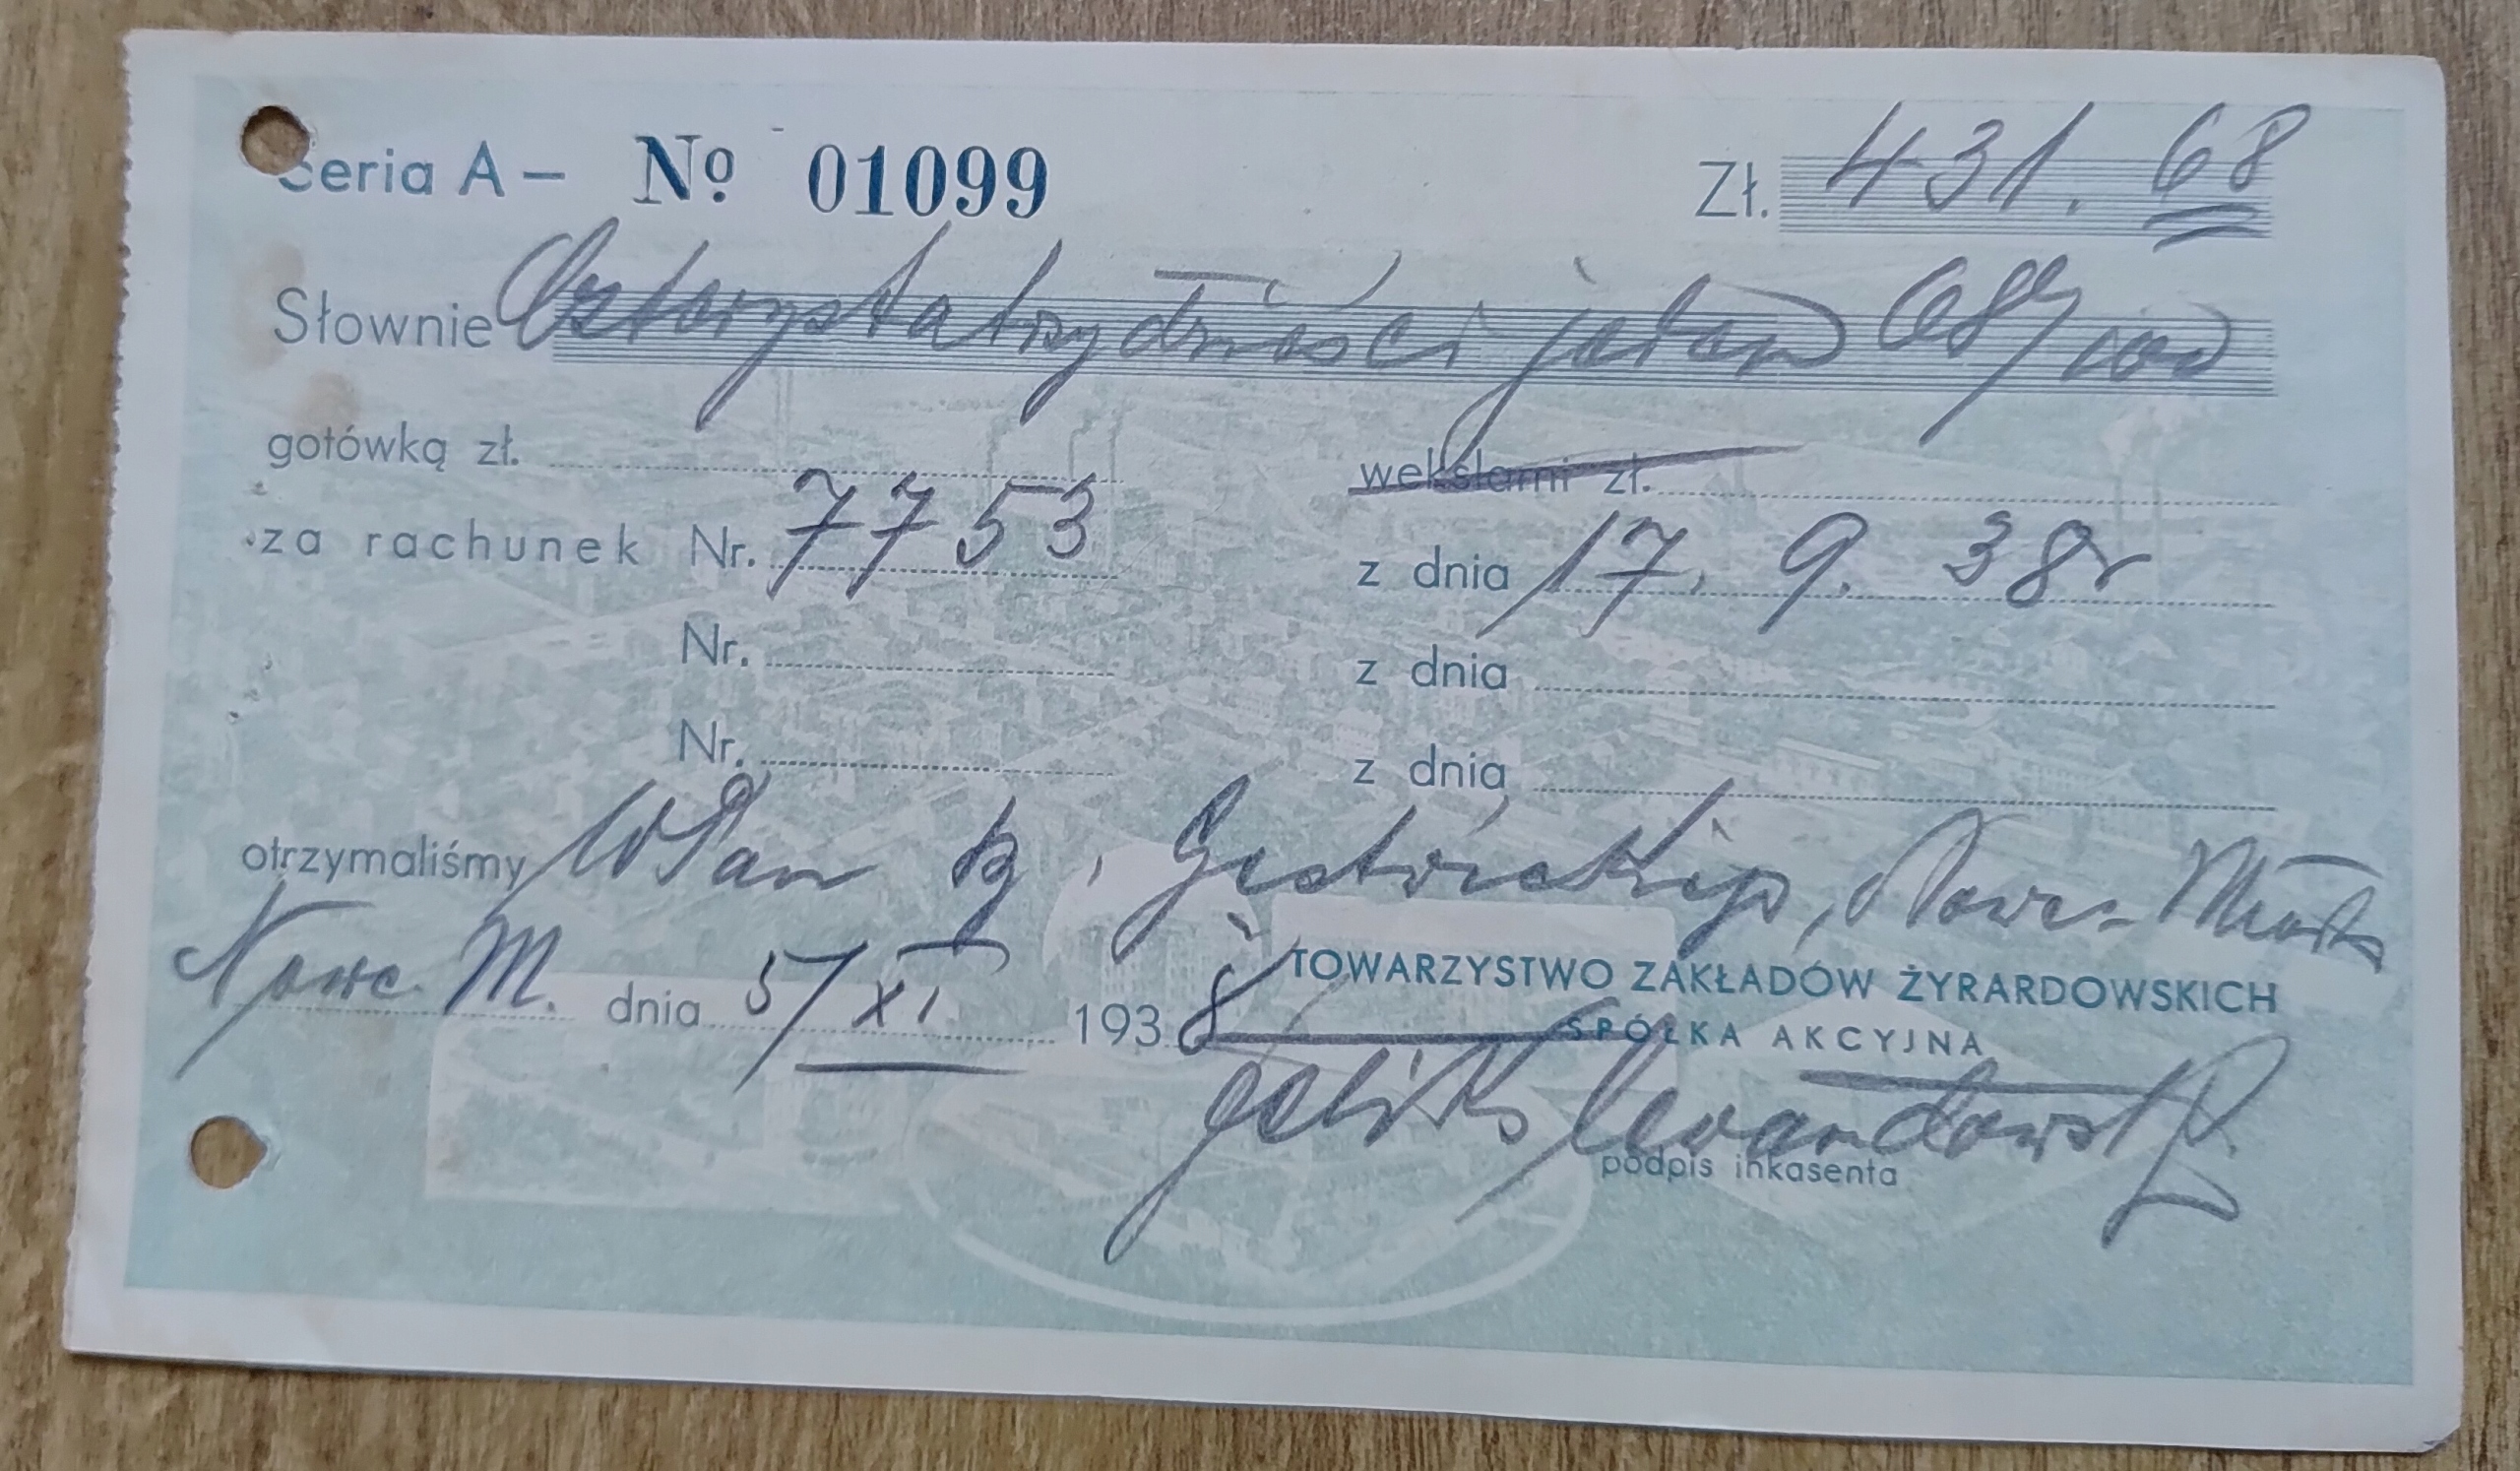 Seria A – Nº 01099 Zł. 431.68
Słownie Czterysta trzydzieści jeden 68/100
gotówką zł. wekslami zł.
za rachunek Nr. 7753 z dnia 17. 9. 38r
Nr. z dnia
Nr. z dnia
otrzymaliśmy WPan B. Nowe-Miasto
Nowe M. dnia 5/XI 1938
TOWARZYSTWO ZAKŁADÓW ŻYRARDOWSKICH
SPÓŁKA AKCYJNA
Feliks Lewandowski
podpis inkasenta